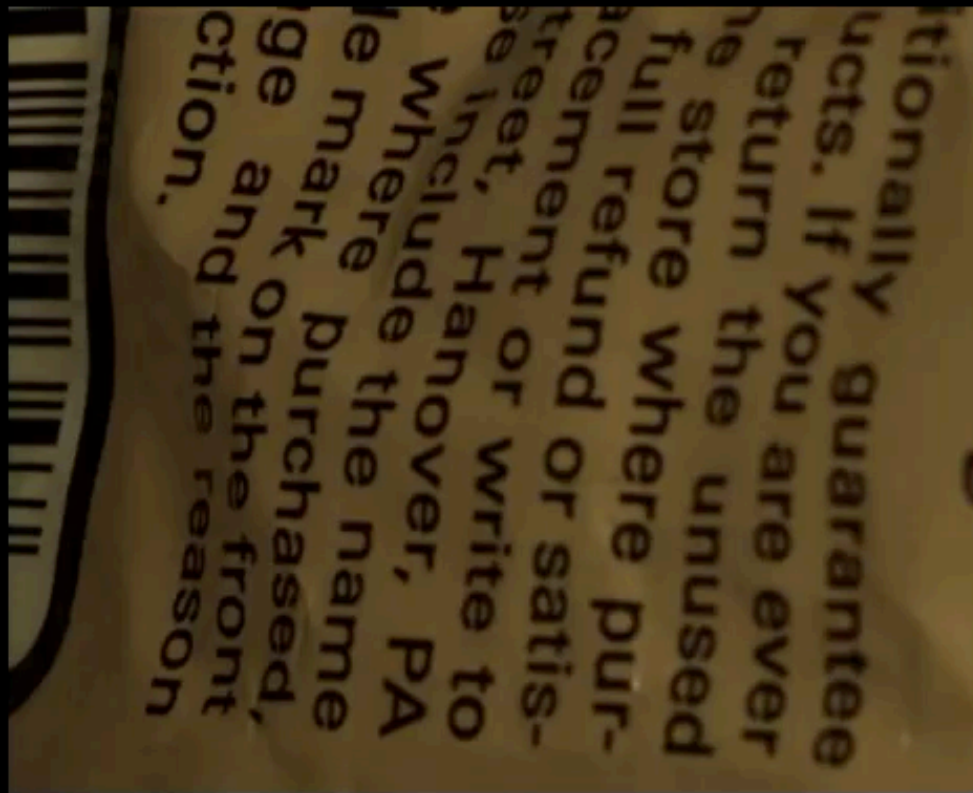 itionally guarantee
ucts. If you are ever
return the unused
he store where pur-
full refund or satis-
acement or write to
treet, Hanover, PA
se include the name
e where purchased,
le mark on the front
nge and the reason
ction.